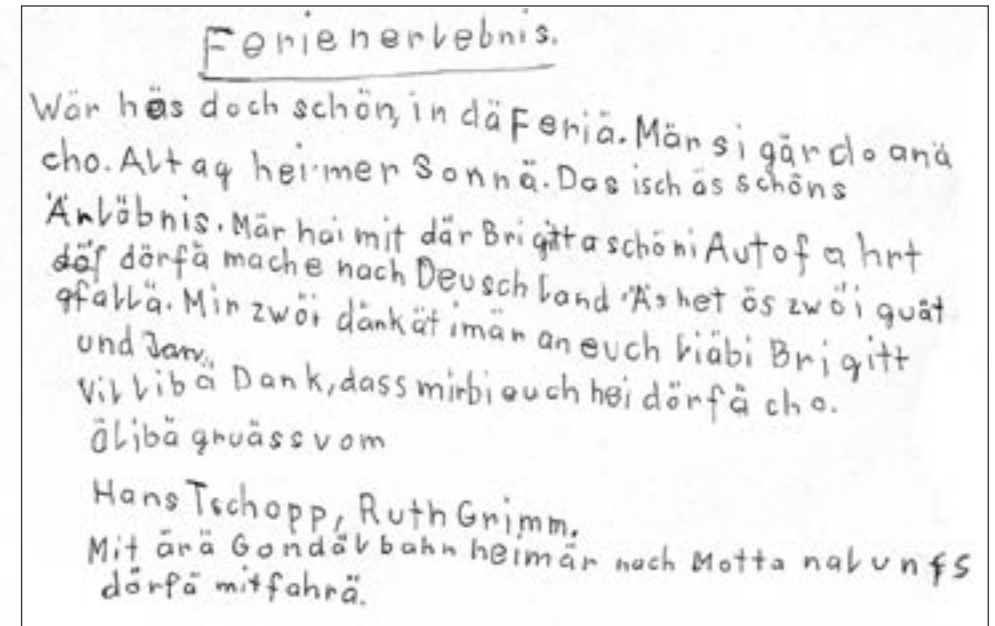 Ferienerlebnis.
Wär häs doch schön, in dä Feriä. Mär si gär do anä
cho. Altag hei mer Sonnä. Das isch äs schöns
Ärläbnis. Mär hai mit där Brigitt a schöni Autofahrt
döf dörfä mache nach Deuschland. Äs het ös zwöi guät
gfallä. Mir zwöi dänkät imär an euch liäbi Brigitt
und Jan.
Vil libä Dank, dass mir bi euch hei dörfä cho.
ä libä gruäss vom
Hans Tschopp, Ruth Grimm.
Mit ärä Gondälbahn hei mär nach Motta naluns
dörfä mitfahrä.